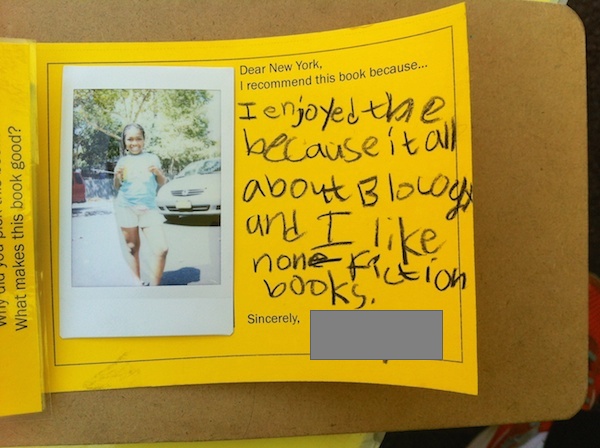 Dear New York,
I recommend this book because...
I enjoyed the
because it all
about Biology
and I like
none fiction
books.
Sincerely,
What makes this book good?